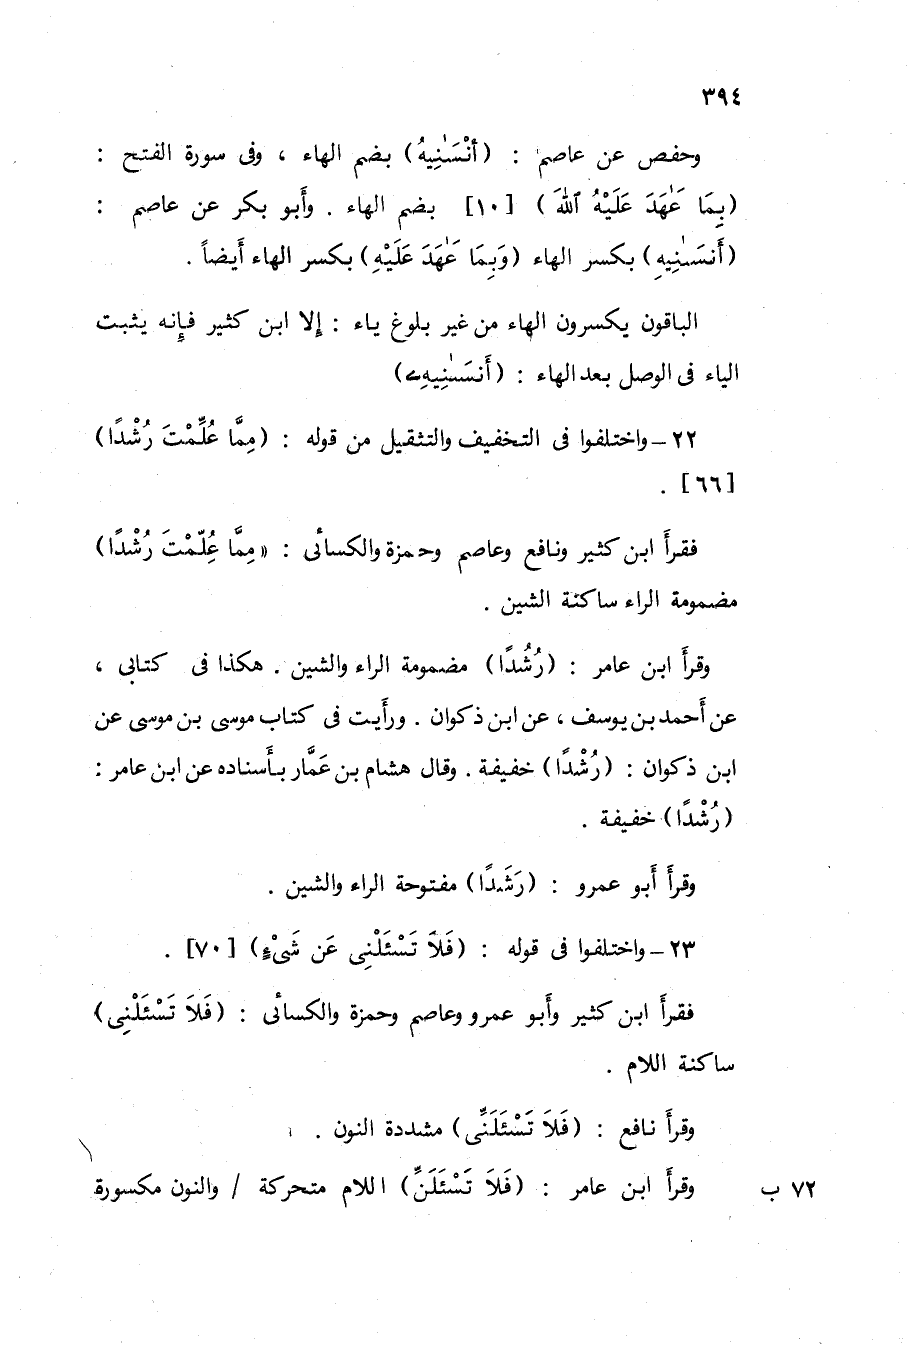 ٣٩٤
وحفص عن عاصم : (أَنْسَىٰنِيهُ) بضم الهاء ، وفى سورة الفتح :
(بِمَا عَٰهَدَ عَلَيْهُ ٱللَّهَ ) [١٠] بضم الهاء . وأَبو بكر عن عاصم :
(أَنسَىٰنِيهِ) بكسر الهاء (وَبِمَا عَٰهَدَ عَلَيْهِ) بكسر الهاء أَيضاً .
الباقون يكسرون الهاء من غير بلوغ ياء : إِلا ابن كثير فإنه يثبت
الياء فى الوصل بعد الهاء : (أَنسَىٰنِيهِے)
٢٢ ــ واختلفوا فى التخفيف والتثقيل من قوله : (مِمَّا عُلِّمْتَ رُشْدًا)
[٦٦] .
فقرأَ ابن كثير ونافع وعاصم وحمزة والكسائى : «مِمَّا عُلِّمْتَ رُشْدًا)
مضمومة الراء ساكنة الشين .
وقرأَ ابن عامر : (رُشُدًا) مضمومة الراء والشين . هكذا فى كتابى ،
عن أَحمد بن يوسف ، عن ابن ذكوان . ورأَيت فى كتاب موسى بن موسى عن
ابن ذكوان : (رُشْدًا) خفيفة . وقال هشام بن عَمَّار بأَسناده عن ابن عامر :
(رُشْدًا) خفيفة .
وقرأَ أَبو عمرو : (رَشَدًا) مفتوحة الراء والشين .
٢٣ ــ واختلفوا فى قوله : (فَلاَ تَسْئَلْنِى عَن شَىْءٍ) [٧٠] .
فقرأَ ابن كثير وأَبو عمرو وعاصم وحمزة والكسائى : (فَلاَ تَسْئَلْنِى)
ساكنة اللام .
وقرأَ نافع : (فَلاَ تَسْئَلَنِّى) مشددة النون .
وقرأَ ابن عامر : (فَلاَ تَسْئَلَنِّ) اللام متحركة / والنون مكسورة ٧٢ ب